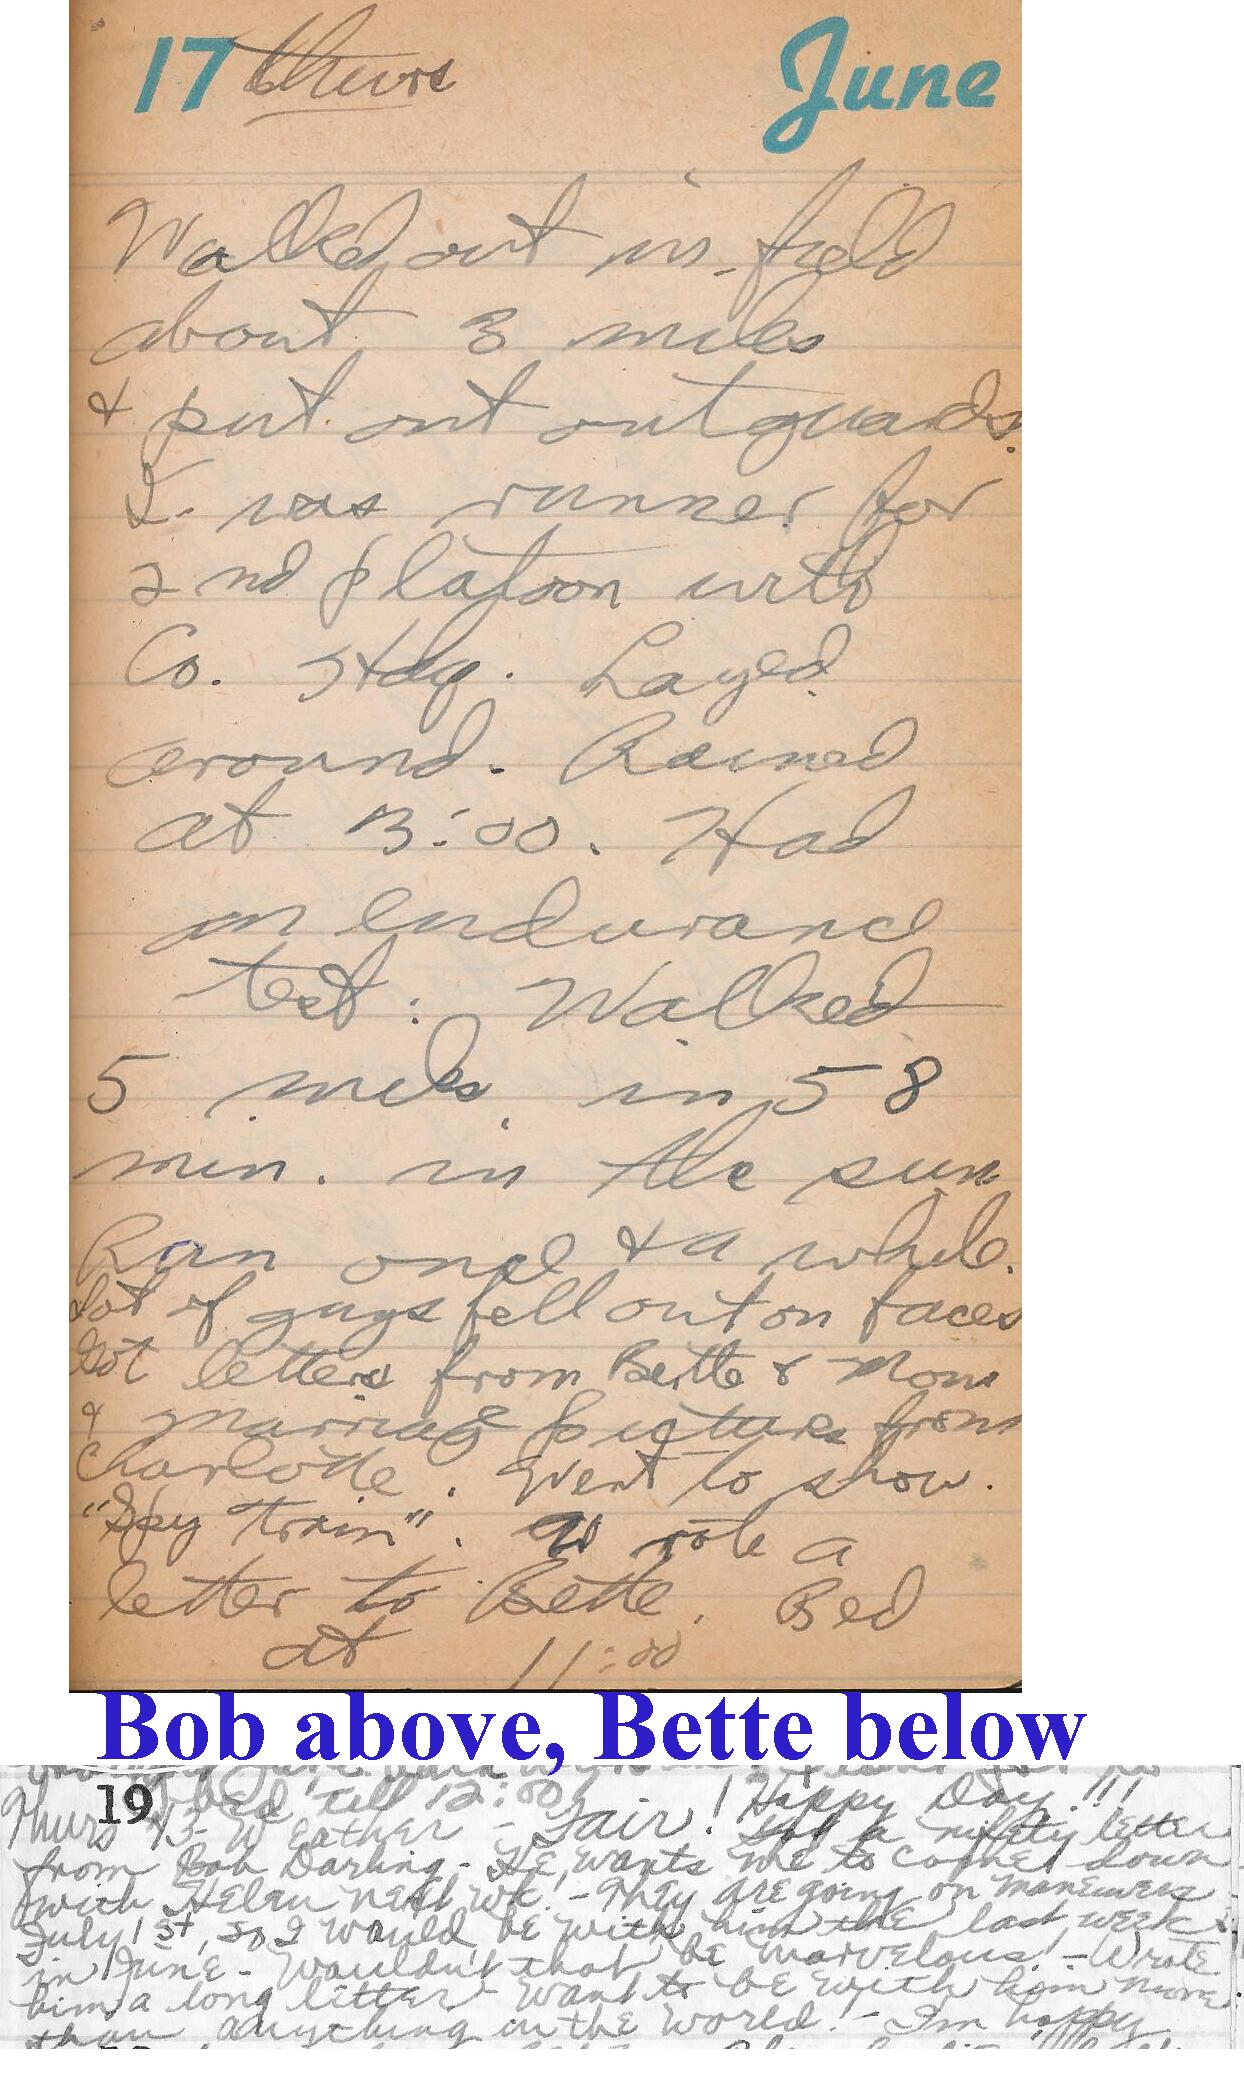 17 Thurs June
Walked out in field
about 3 miles
& put out outguards.
I was runner for
2nd platoon with
Co. Hdq. Layed
around. Rained
at 3:00. Had
an endurance
test: Walked
5 miles in 58
min. in the sun
Ran once & a while.
Lot of guys fell out on faces
Got letters from Bette & Mom
& marriage picture from
Charlotte. Went to show.
"Spy Train". Wrote a
letter to Bette. Bed
at 11:00
Bob above, Bette below
bed till 12:00
19
Thurs 43 - Weather - Fair! Happy Day!!! Got a nifty letter
from Bob Darling - He wants me to come down
with Helen next wk! - They are going on maneuvers
July 1st, so I would be with him the last week
in June - Wouldn't that be marvelous! - Wrote
him a long letter - Want to be with him more
than anything in the world! - I'm happy